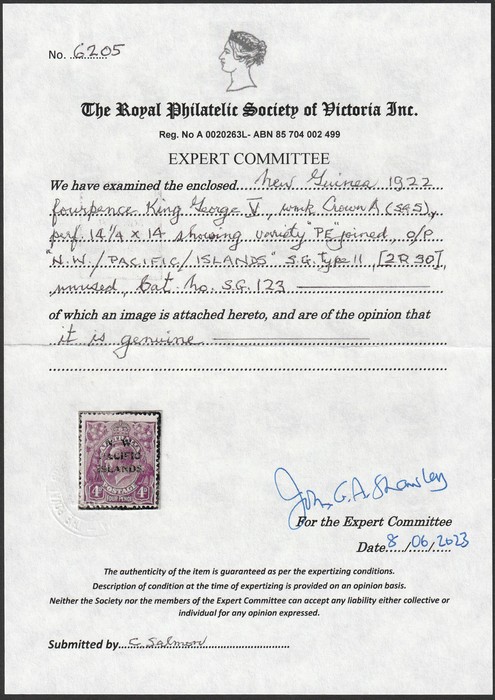 No. 6205
The Royal Philatelic Society of Victoria Inc.
Reg. No A 0020263L- ABN 85 704 002 499
EXPERT COMMITTEE
We have examined the enclosed New Guinea 1922
fourpence King George V, wmk Crown A (SG5),
perf. 14¼ x 14 showing variety "PE" joined, O/P
"N.W./PACIFIC/ISLANDS" S.G. Type 11, [2R30],
unused, Cat. No. S.G. 123
of which an image is attached hereto, and are of the opinion that
it is genuine
N. W.
PACIFIC
ISLANDS
POSTAGE
4d 4d
FOUR PENCE
For the Expert Committee
Date 8/06/2023
The authenticity of the item is guaranteed as per the expertizing conditions.
Description of condition at the time of expertizing is provided on an opinion basis.
Neither the Society nor the members of the Expert Committee can accept any liability either collective or
individual for any opinion expressed.
Submitted by C Salmon